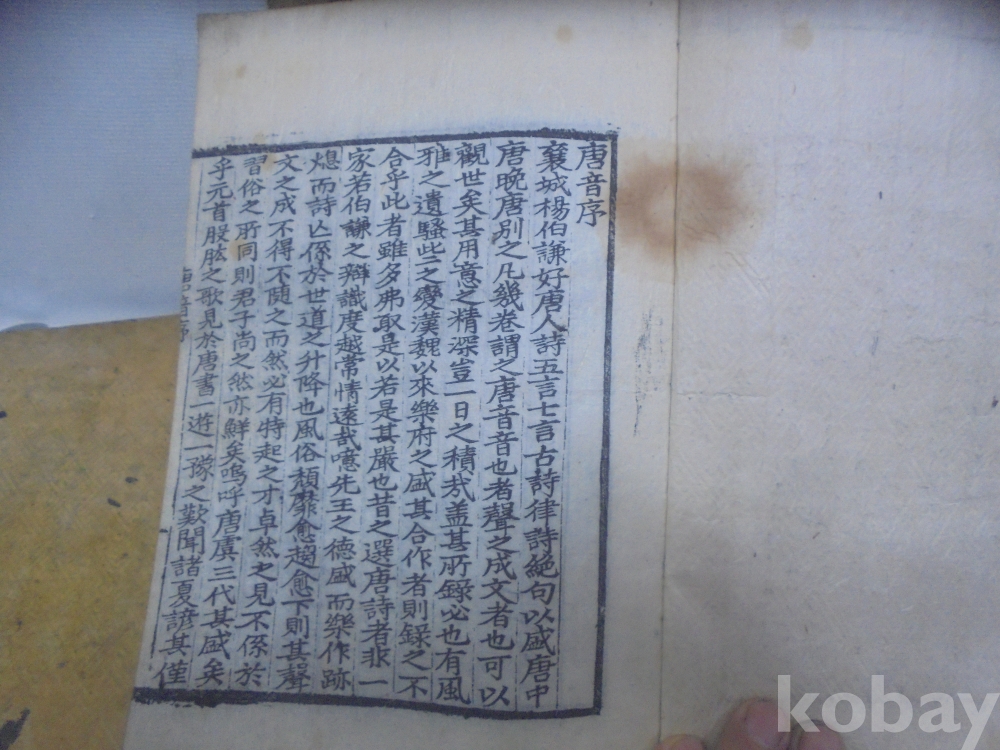 唐音序
襄城楊伯謙好唐人詩五言七言古詩律詩絶句以盛唐中
唐晩唐别之凡幾卷謂之唐音音也者聲之成文者也可以
觀世矣其用意之精深豈一日之積㢤盖其所録必也有風
雅之遺騷些之變漢魏以來樂府之盛其合作者則録之不
合乎此者雖多弗取是以若是其嚴也昔之選唐詩者非一
家若伯謙之辯識度越常情遠哉噫先王之德盛而樂作跡
熄而詩亡係於世道之升降也風俗頽靡愈趨愈下則其聲
文之成不得不隨之而然必有特起之才卓然之見不係於
習俗之所同則君子尚之然亦鮮矣嗚呼唐虞三代其盛矣
乎元首股肱之歌見於唐書一遊一豫之歎聞諸夏諺其僅
唐音序
kobay